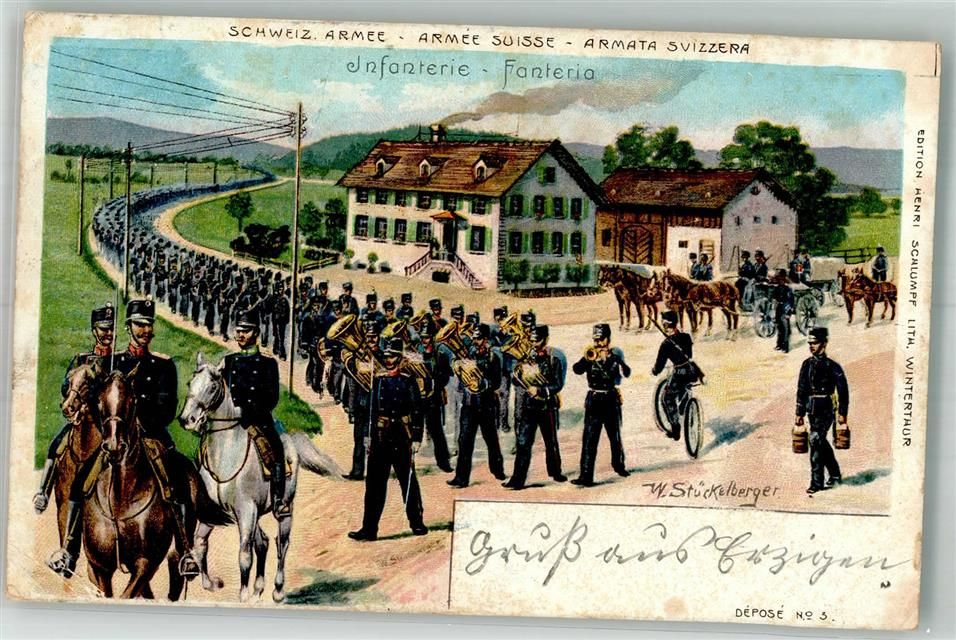 SCHWEIZ. ARMEE - ARMÉE SUISSE - ARMATA SVIZZERA
Infanterie - Fanteria
EDITION HENRI SCHLUMPF LITH. WINTERTHUR
W. Stückelberger
Gruß aus Erzigen
DÉPOSÉ No 5.